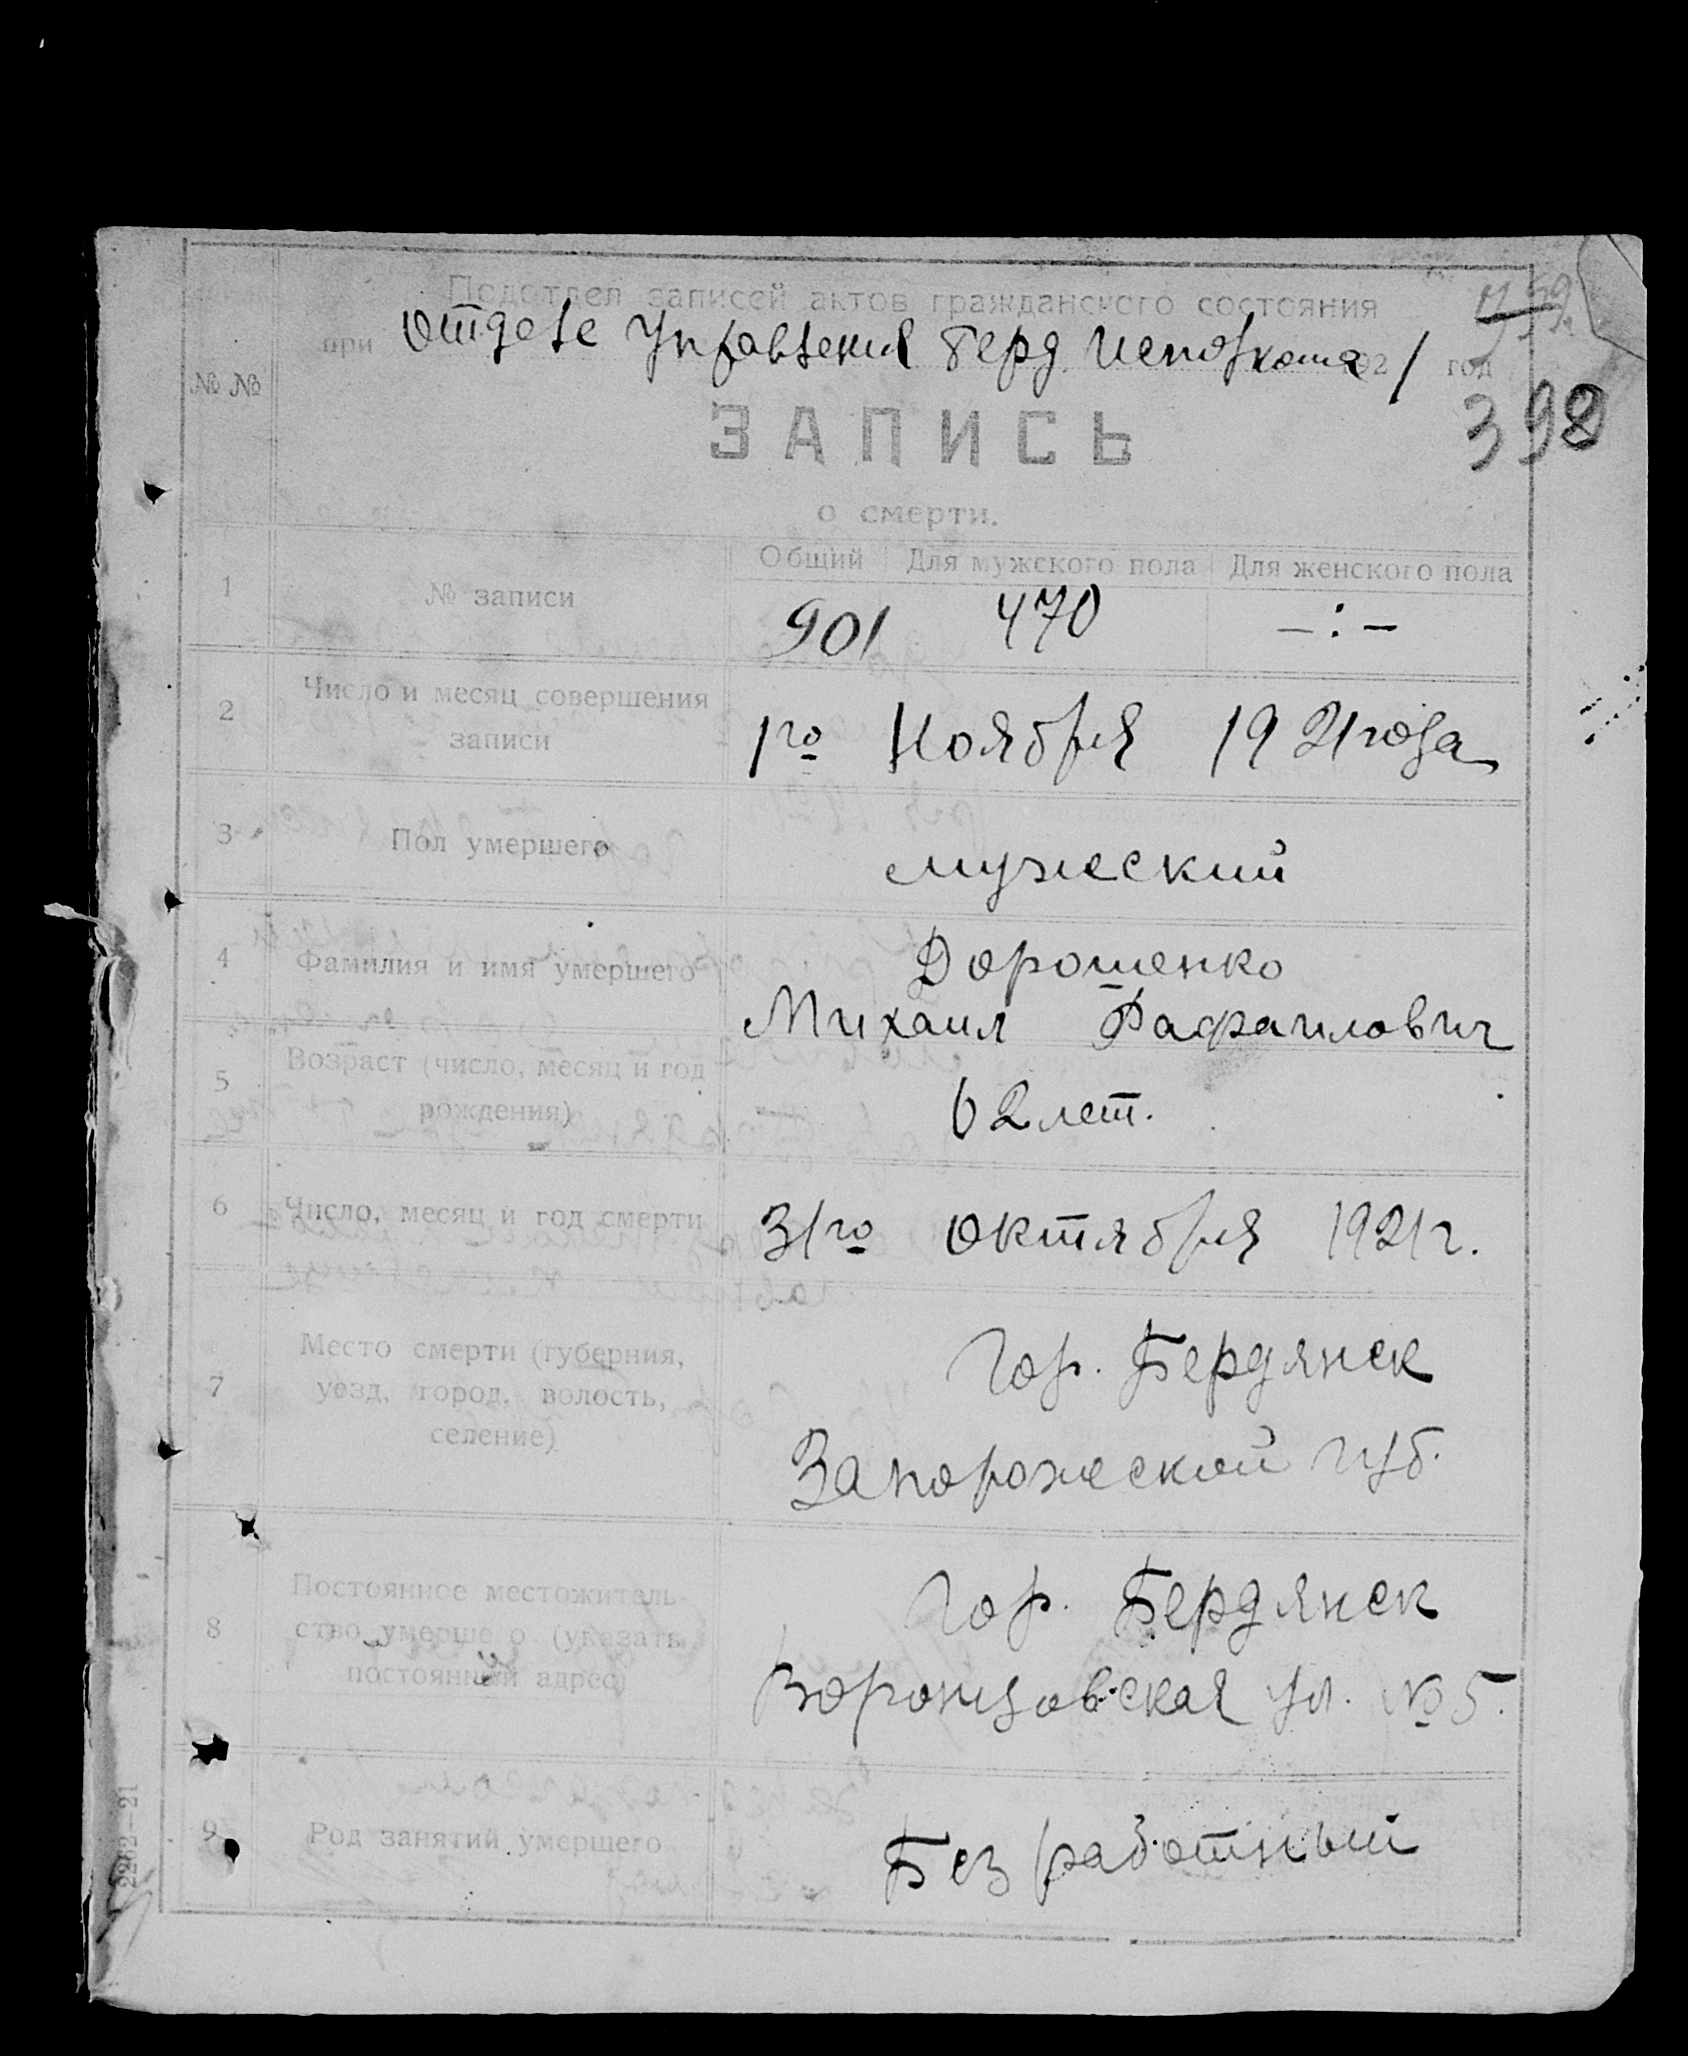 Подотдел записей актов гражданского состояния
при Отделе Управления Берд Исполкома 1921 год
398
№ №
ЗАПИСЬ
о смерти.
Общий Для мужского пола Для женского пола
1 № записи 901 470 –:–
2 Число и месяц совершения
записи 1го Ноября 1921 года
3 Пол умершего мужеский
4 Фамилия и имя умершего Дорошенко
Михаил Рафаилович
5 Возраст (число, месяц и год
рождения) 62 лет.
6 Число, месяц и год смерти 31го Октября 1921 г.
7 Место смерти (губерния,
уезд, город, волость,
селение)
Гор. Бердянск
Запорожеской губ.
8 Постоянное местожитель-
ство умершего (указать
постоянный адрес)
Гор. Бердянск
Воронцовская ул. № 5.
9 Род занятий умершего Безработный
2262—21